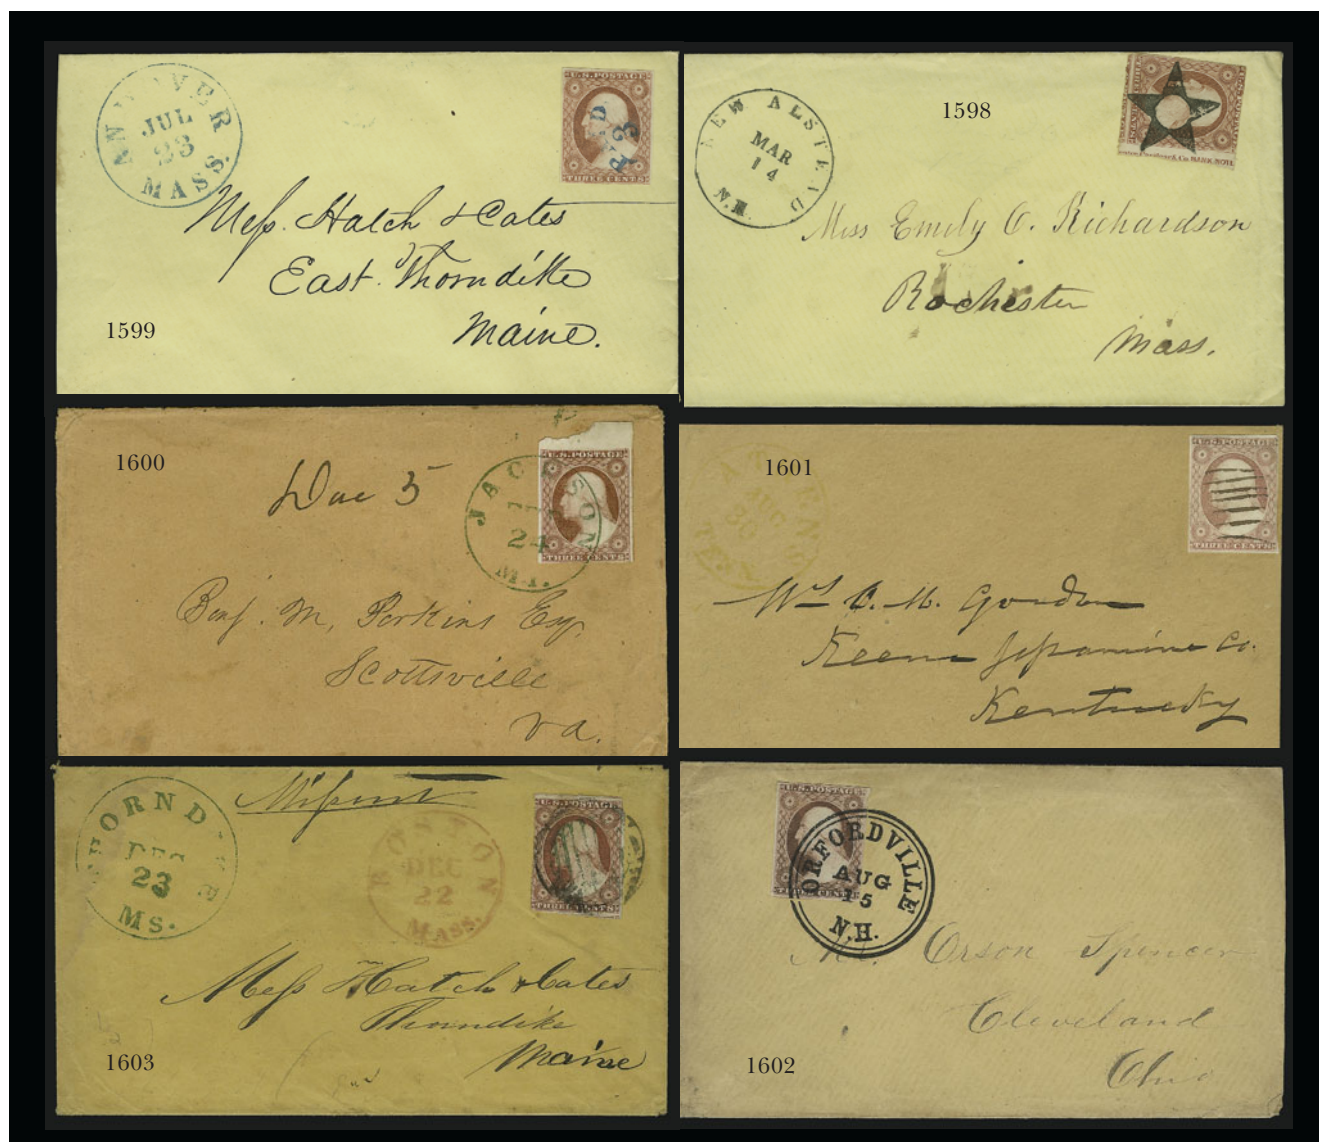 ANDOVER
JUL
23
MASS.
U.S. POSTAGE
PAID
3
THREE CENTS
Mess. Hatch & Cates
East. Thorndike
Maine.
1599
NEW ALSTEAD
MAR
14
N.H.
1598
& Co. BANK NOTE
Miss Emily C. Richardson
Rochester
Mass.
1600
Due 5
JACKSON
24
MI.
U.S. POSTAGE
THREE CENTS
Benj. M. Perkins Esq.
Scottsville
Va.
ATHENS
AUG
30
TEN.
1601
U.S. POSTAGE
THREE CENTS
C. M. Gordon
Keene Jessamine Co.
Kentucky
THORNDIKE
DEC
23
MS.
Missent
BOSTON
DEC
22
MASS.
U.S. POSTAGE
THREE CENTS
Mess Hatch & Cates
Thorndike
Maine
1603
U.S. POSTAGE
ORFORDVILLE
AUG
15
N.H.
Mr. Orson Spencer
Cleveland
Ohio
1602